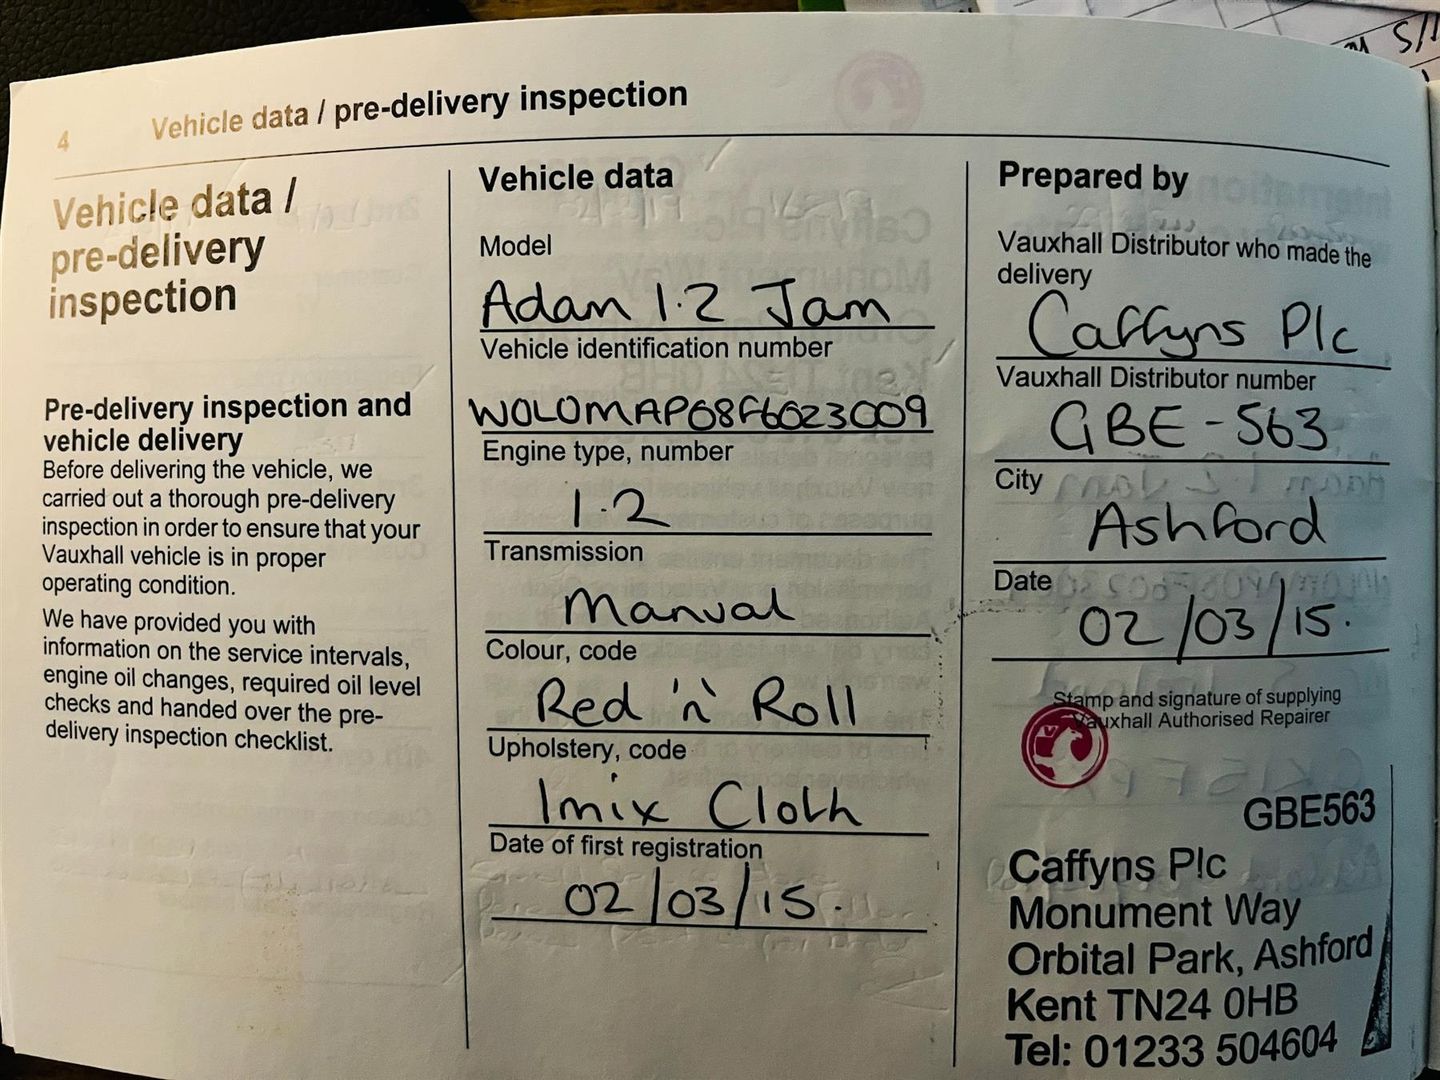 4
Vehicle data / pre-delivery inspection
Vehicle data /
pre-delivery
inspection
Pre-delivery inspection and
vehicle delivery
Before delivering the vehicle, we
carried out a thorough pre-delivery
inspection in order to ensure that your
Vauxhall vehicle is in proper
operating condition.
We have provided you with
information on the service intervals,
engine oil changes, required oil level
checks and handed over the pre-
delivery inspection checklist.
Vehicle data
Model
Adam 1.2 Jam
Vehicle identification number
WOLOMAP08F6023009
Engine type, number
1.2
Transmission
Manual
Colour, code
Red 'n' Roll
Upholstery, code
Imix Cloth
Date of first registration
02/03/15.
Prepared by
Vauxhall Distributor who made the
delivery
Caffyns Plc
Vauxhall Distributor number
GBE-563
City
Ashford
Date
02/03/15.
Stamp and signature of supplying
Vauxhall Authorised Repairer
GBE563
Caffyns Plc
Monument Way
Orbital Park, Ashford
Kent TN24 0HB
Tel: 01233 504604